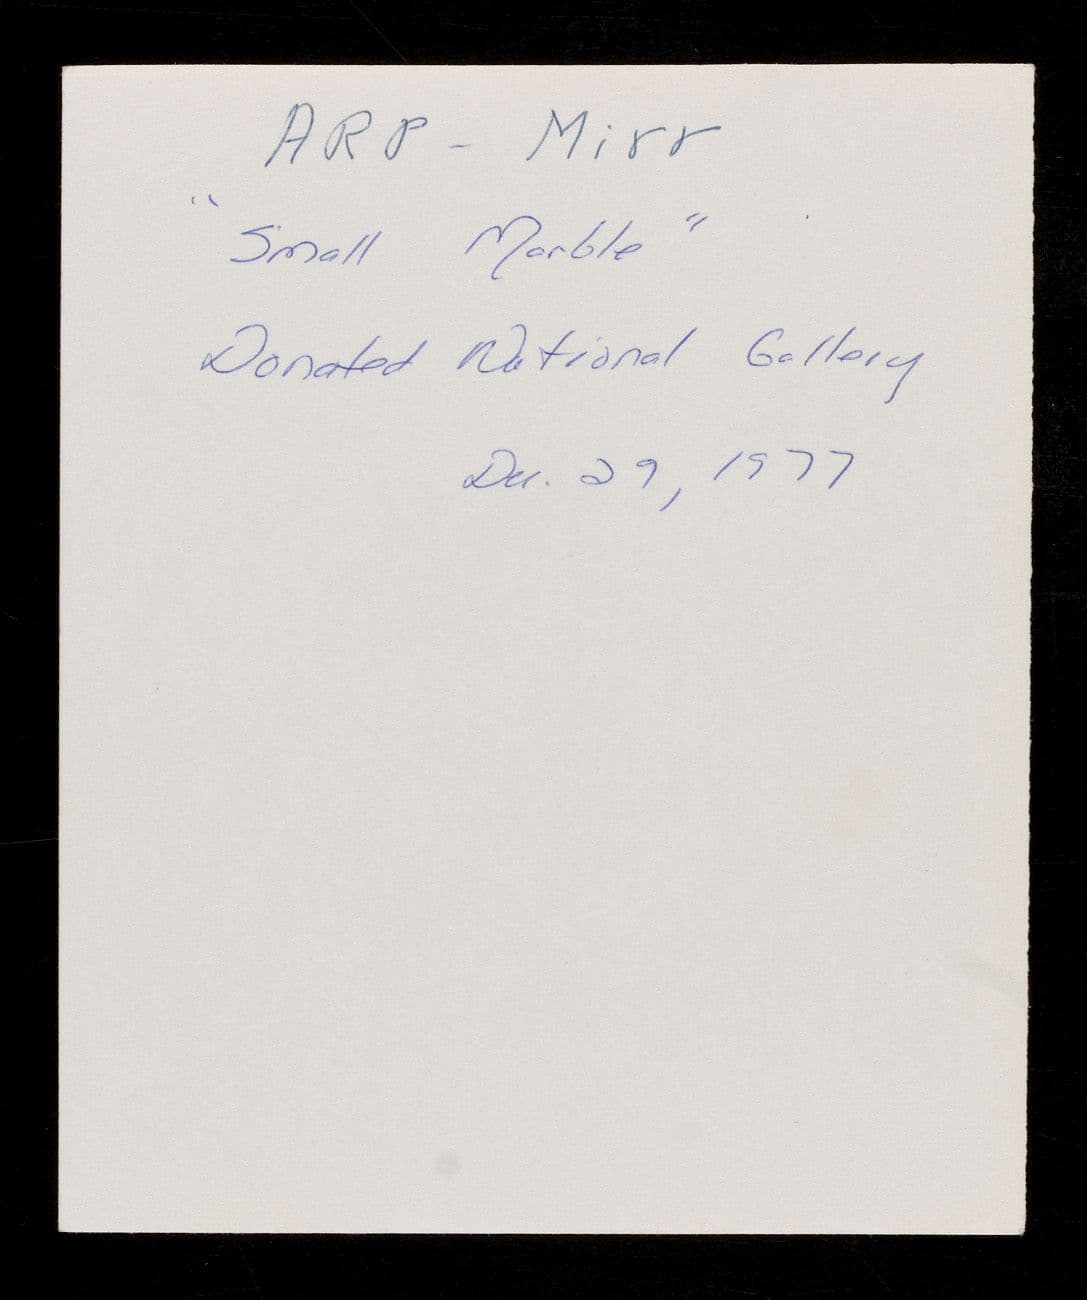 ARP - Mirr
"Small Marble"
Donated National Gallery
Dec. 29, 1977